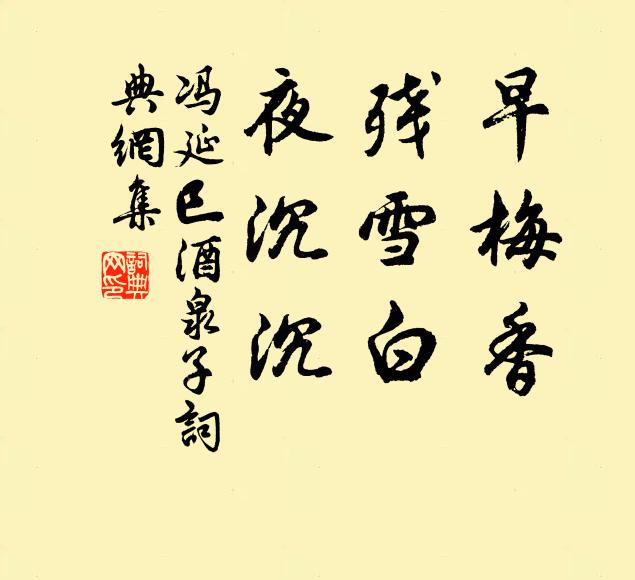 早梅香
残雪白
夜沉沉
冯延巳酒泉子詞
典網集
詞典網印